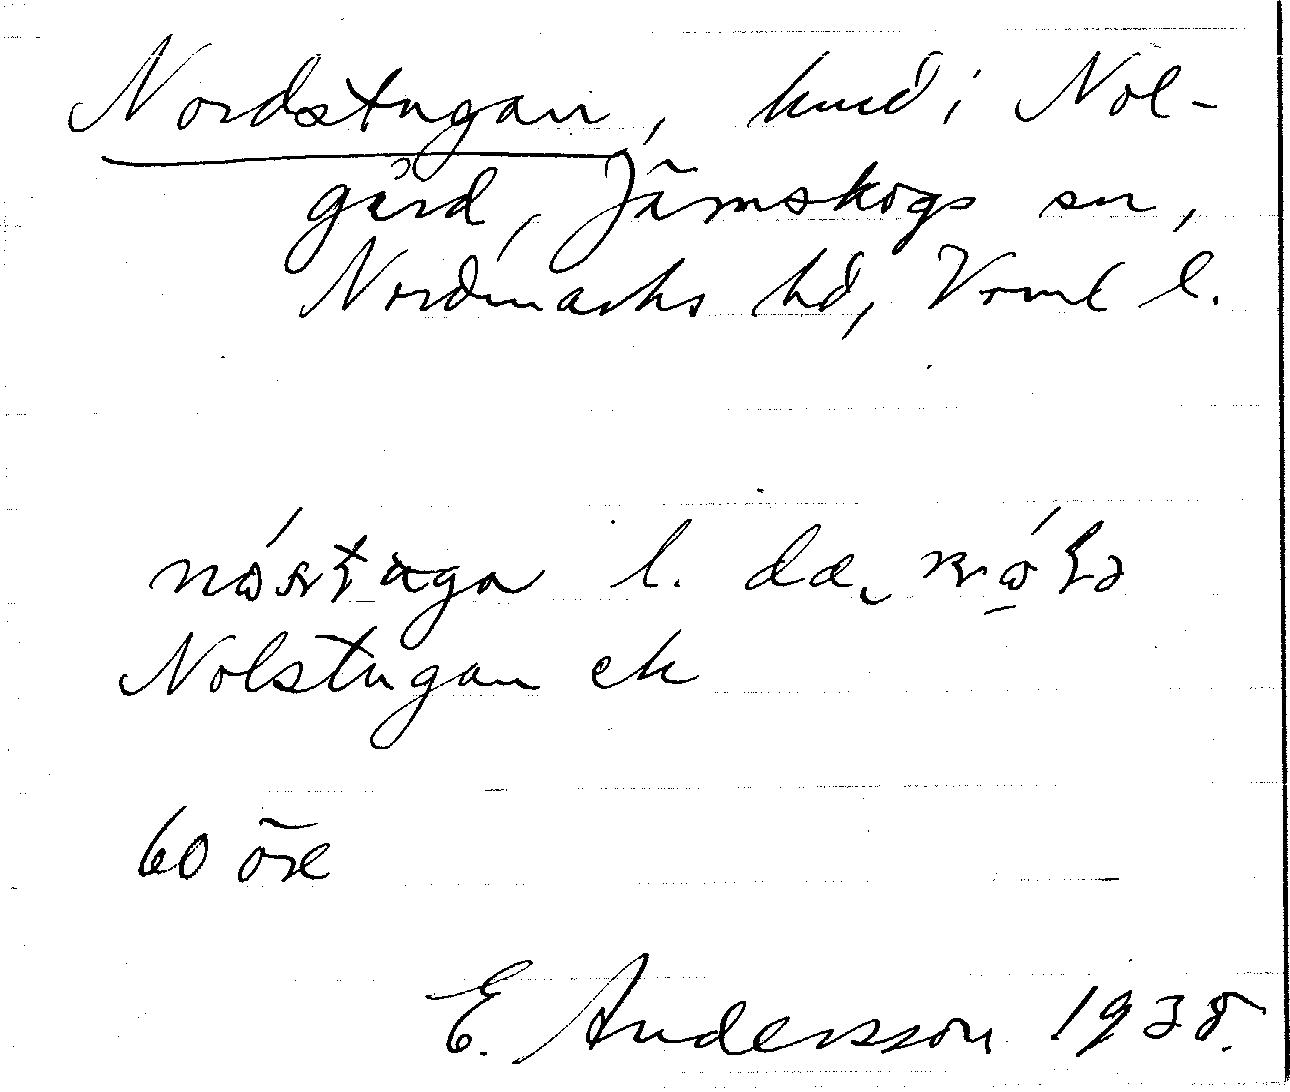 Nordstugan, hmd i Nol-
gård, Järnskogs sn,
Nordmarks hd, Vrml l.
nósrtuga l. dα,
Nolstugan ek
60 öre
E. Andersson 1938.